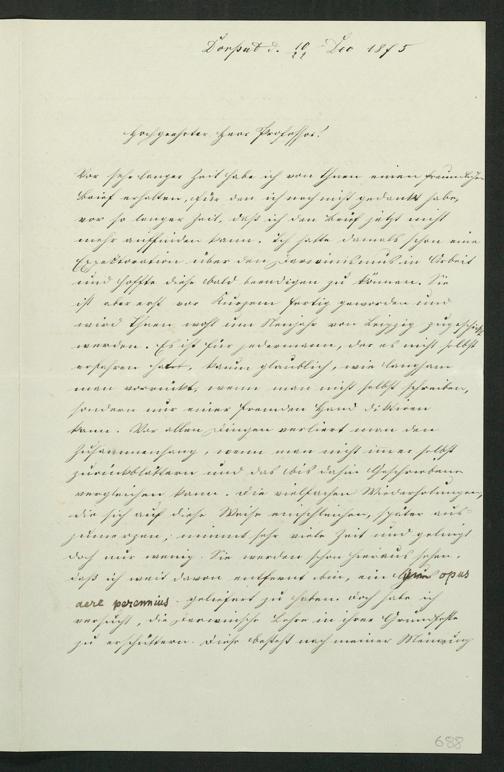 Dorpat d. 10/22 Dec 1875
Hochgeehrter Herr Professor!
Vor sehr langer Zeit habe ich von Ihnen einen freundlichen
Brief erhalten, für den ich noch nicht gedankt habe,
vor so langer Zeit, daß ich den Brief jetzt nicht
mehr auffinden kann. Ich hatte damals schon eine
Expektoration über den Darwinismus in Arbeit
und hoffte diese bald beendigen zu können. Sie
ist aber erst vor Kurzem fertig geworden und
wird Ihnen wohl um Neujahr von Leipzig zugeschickt
werden. Es ist für jedermann, der es nicht selbst
erfahren hat, kaum glaublich, wie langsam
man vorrückt, wenn man nicht selbst schreiben,
sondern nur einer fremden Hand diktiren
kann. Vor allen Dingen verliert man den
Zusammenhang, wenn man nicht immer selbst
zurückblättern und das bis dahin Geschriebene
vergleichen kann. Die vielfachen Wiederholungen,
die sich auf diese Weise einschleichen, später aus-
zumerzen, nimmt sehr viele Zeit und gelingt
doch nur wenig. Sie werden schon hieraus sehen,
daß ich weit davon entfernt bin, ein opus
aere perennius geliefert zu haben. Doch habe ich
versucht, die Darwinsche Lehre in ihrer Grundfeste
zu erschüttern. Diese besteht nach meiner Meinung
688